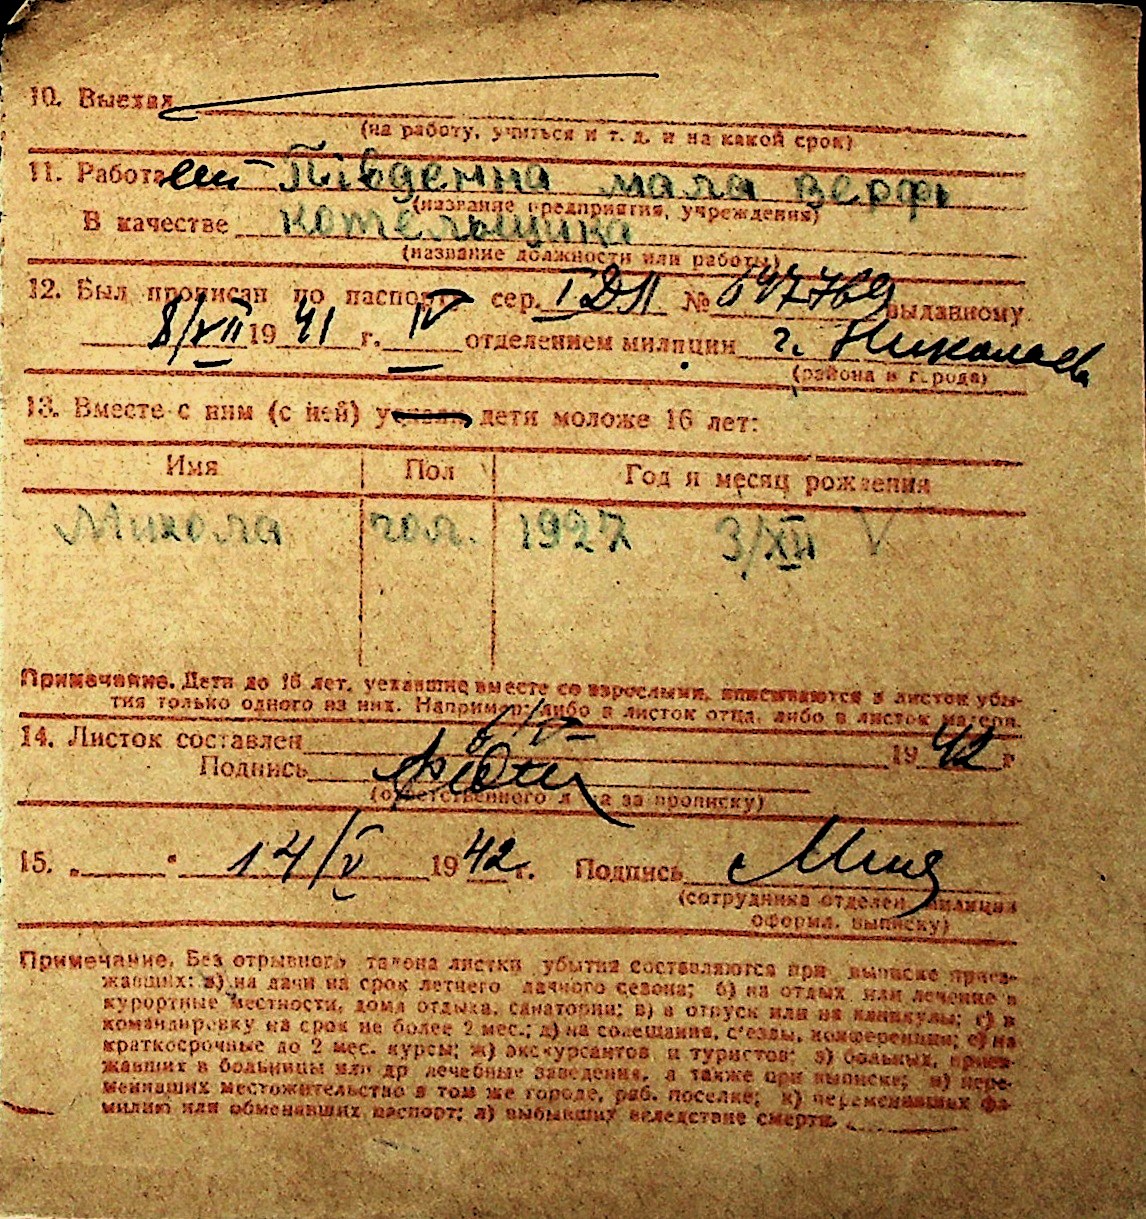 10. Выехал
(на работу, учиться и т. д. и на какой срок)
11. Работает - Південна мала верфь
(название предприятия, учреждения)
В качестве котельщика
(название должности или работы)
12. Был прописан по паспорту сер. I ДЛ № 647769 выданному
8/VII 1941 г. IV отделением милиции г. Николаев
(района и города)
13. Вместе с ним (с ней) дети моложе 16 лет:
Имя Пол Год и месяц рождения
Микола чол. 1927 3/XII V
Примечание. Дети до 16 лет, уехавшие вместе со взрослыми, вписываются в листок убы-
тия только одного из них. Например: либо в листок отца, либо в листок матери.
14. Листок составлен 6/V- 1942 г
Подпись
(ответственного л а за прописку)
15. „ “ 14/V 1942 г. Подпись
(сотрудника отделен. милиции
оформ. выписку)
Примечание. Без отрывного талона листки убытия составляются при выписке приез-
жавших: а) на дачи на срок летнего дачного сезона; б) на отдых или лечение в
курортные местности, дома отдыха, санатории; в) в отпуск или на каникулы; г) в
командировку на срок не более 2 мес.; д) на совещания, с'езды, конференции; е) на
краткосрочные до 2 мес. курсы; ж) экскурсантов и туристов; з) больных, приез-
жавших в больницы или др лечебные заведения, а также при выписке; и) пере-
менивших местожительство в том же городе, раб. поселке; к) переменивших фа-
милию или обменявших паспорт; л) выбывших вследствие смерти.